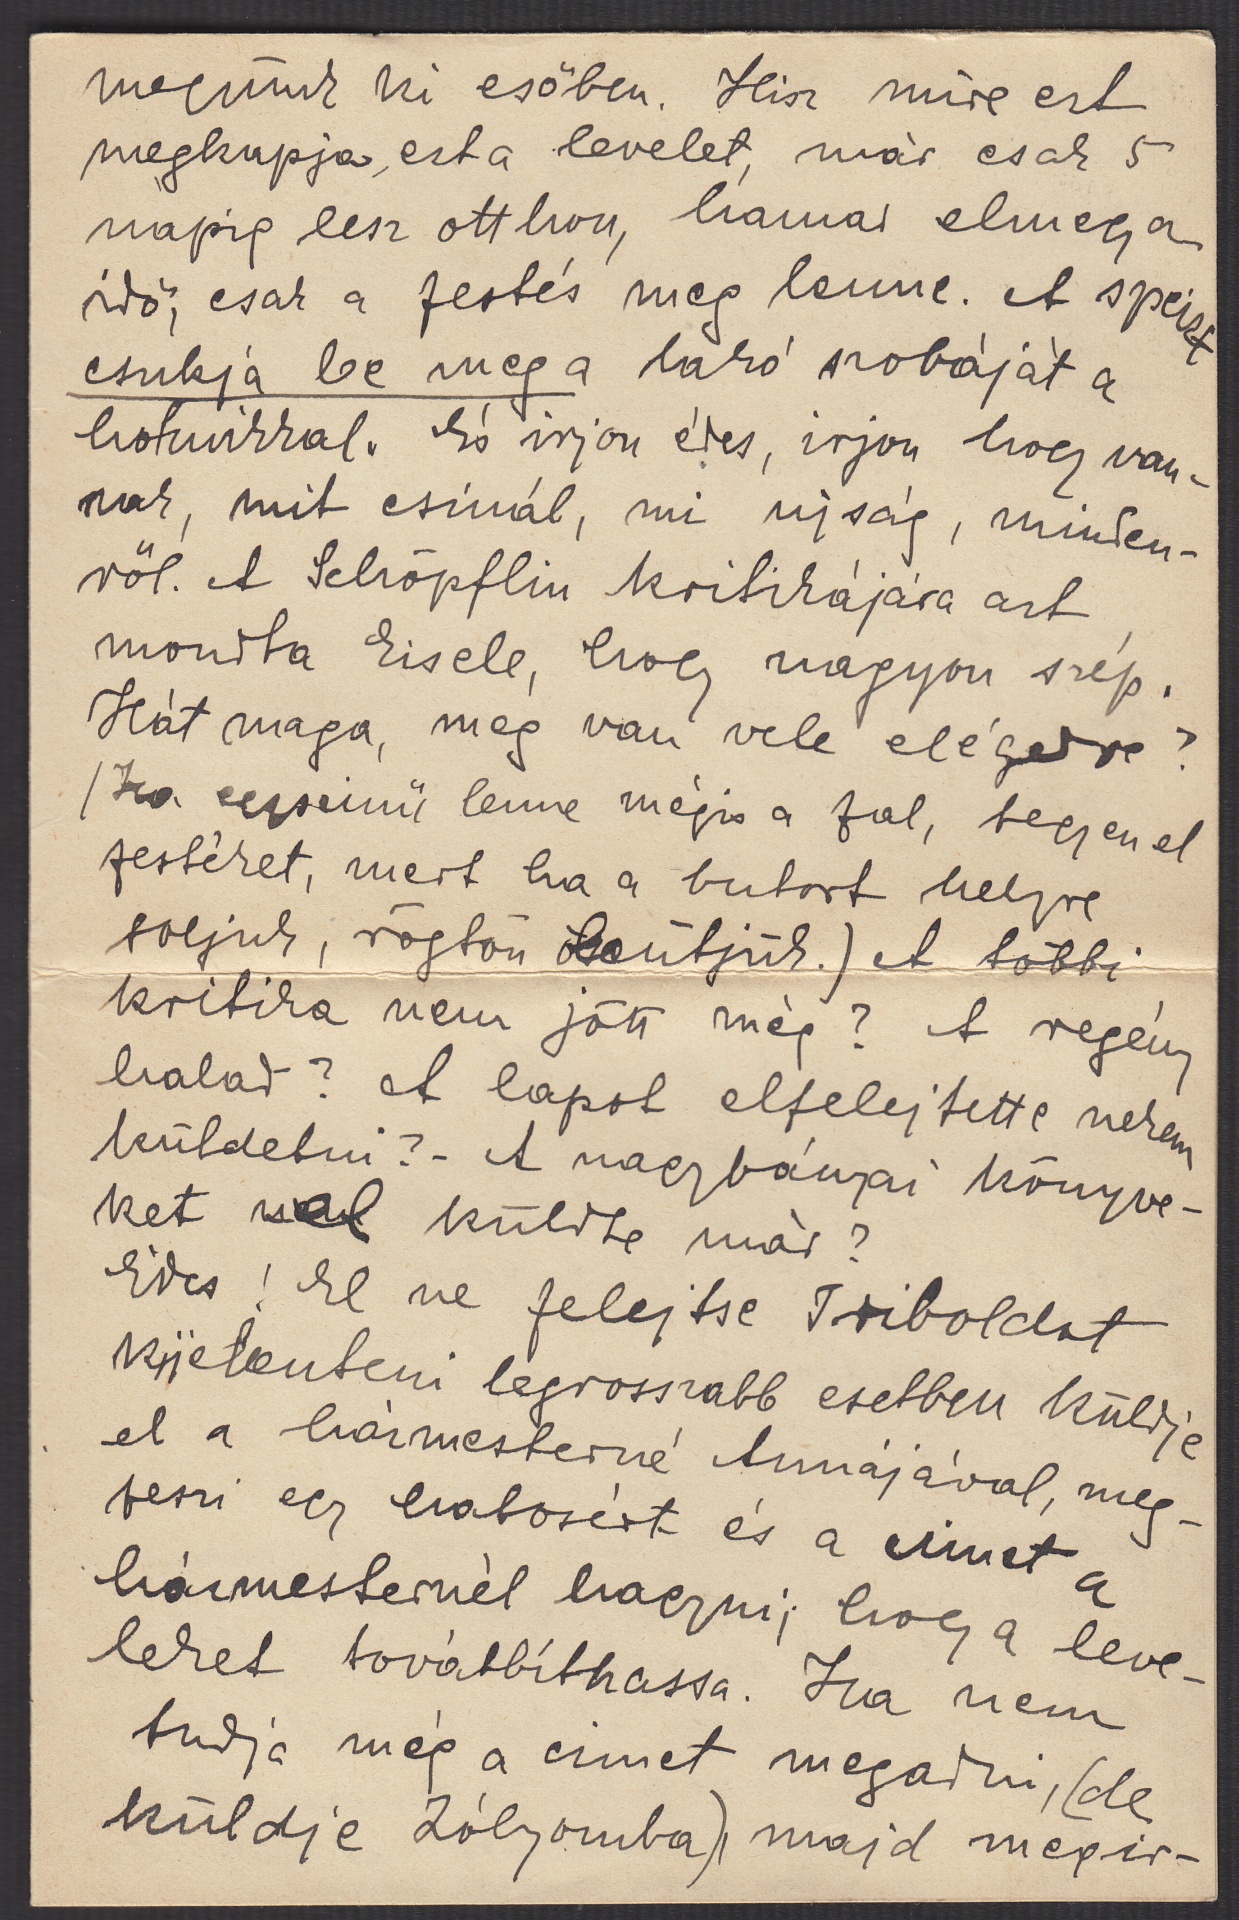 megyünk ki esőben. Hisz mire ezt
megkapja, ezt a levelet, már csak 5
napig lesz otthon, hamar elmegy a
idő, csak a festés meg lenne. A speizt
csukja be meg a háló szobáját a
holmikkal. És irjon édes, irjon hogy van-
nak, mit csinál, mi ujság, minden-
ről. A Schöpflin kritikájára azt
mondta Eisele, hogy nagyon szép.
Hát maga, meg van vele elégedve?
(Ha egyszinü lenne mégis a fal, tegyen el
festéket, mert ha a butort helyre
toljuk, rögtön beütjük.) A többi
kritika nem jött még? A regény
halad? A lapot elfelejtette nekem
küldetni? - A nagybányai könyve-
ket el küldte már?
Édes! El ne felejtse Triboldot
kijelenteni legrosszabb esetben küldje
el a házmesterné Annájával, meg-
teszi egy hatosért és a cimet a
házmesternél hagyni, hogy a leve-
leket továbbíthassa. Ha nem
tudja még a cimet megadni, (de
küldje Zólyomba), majd megir-